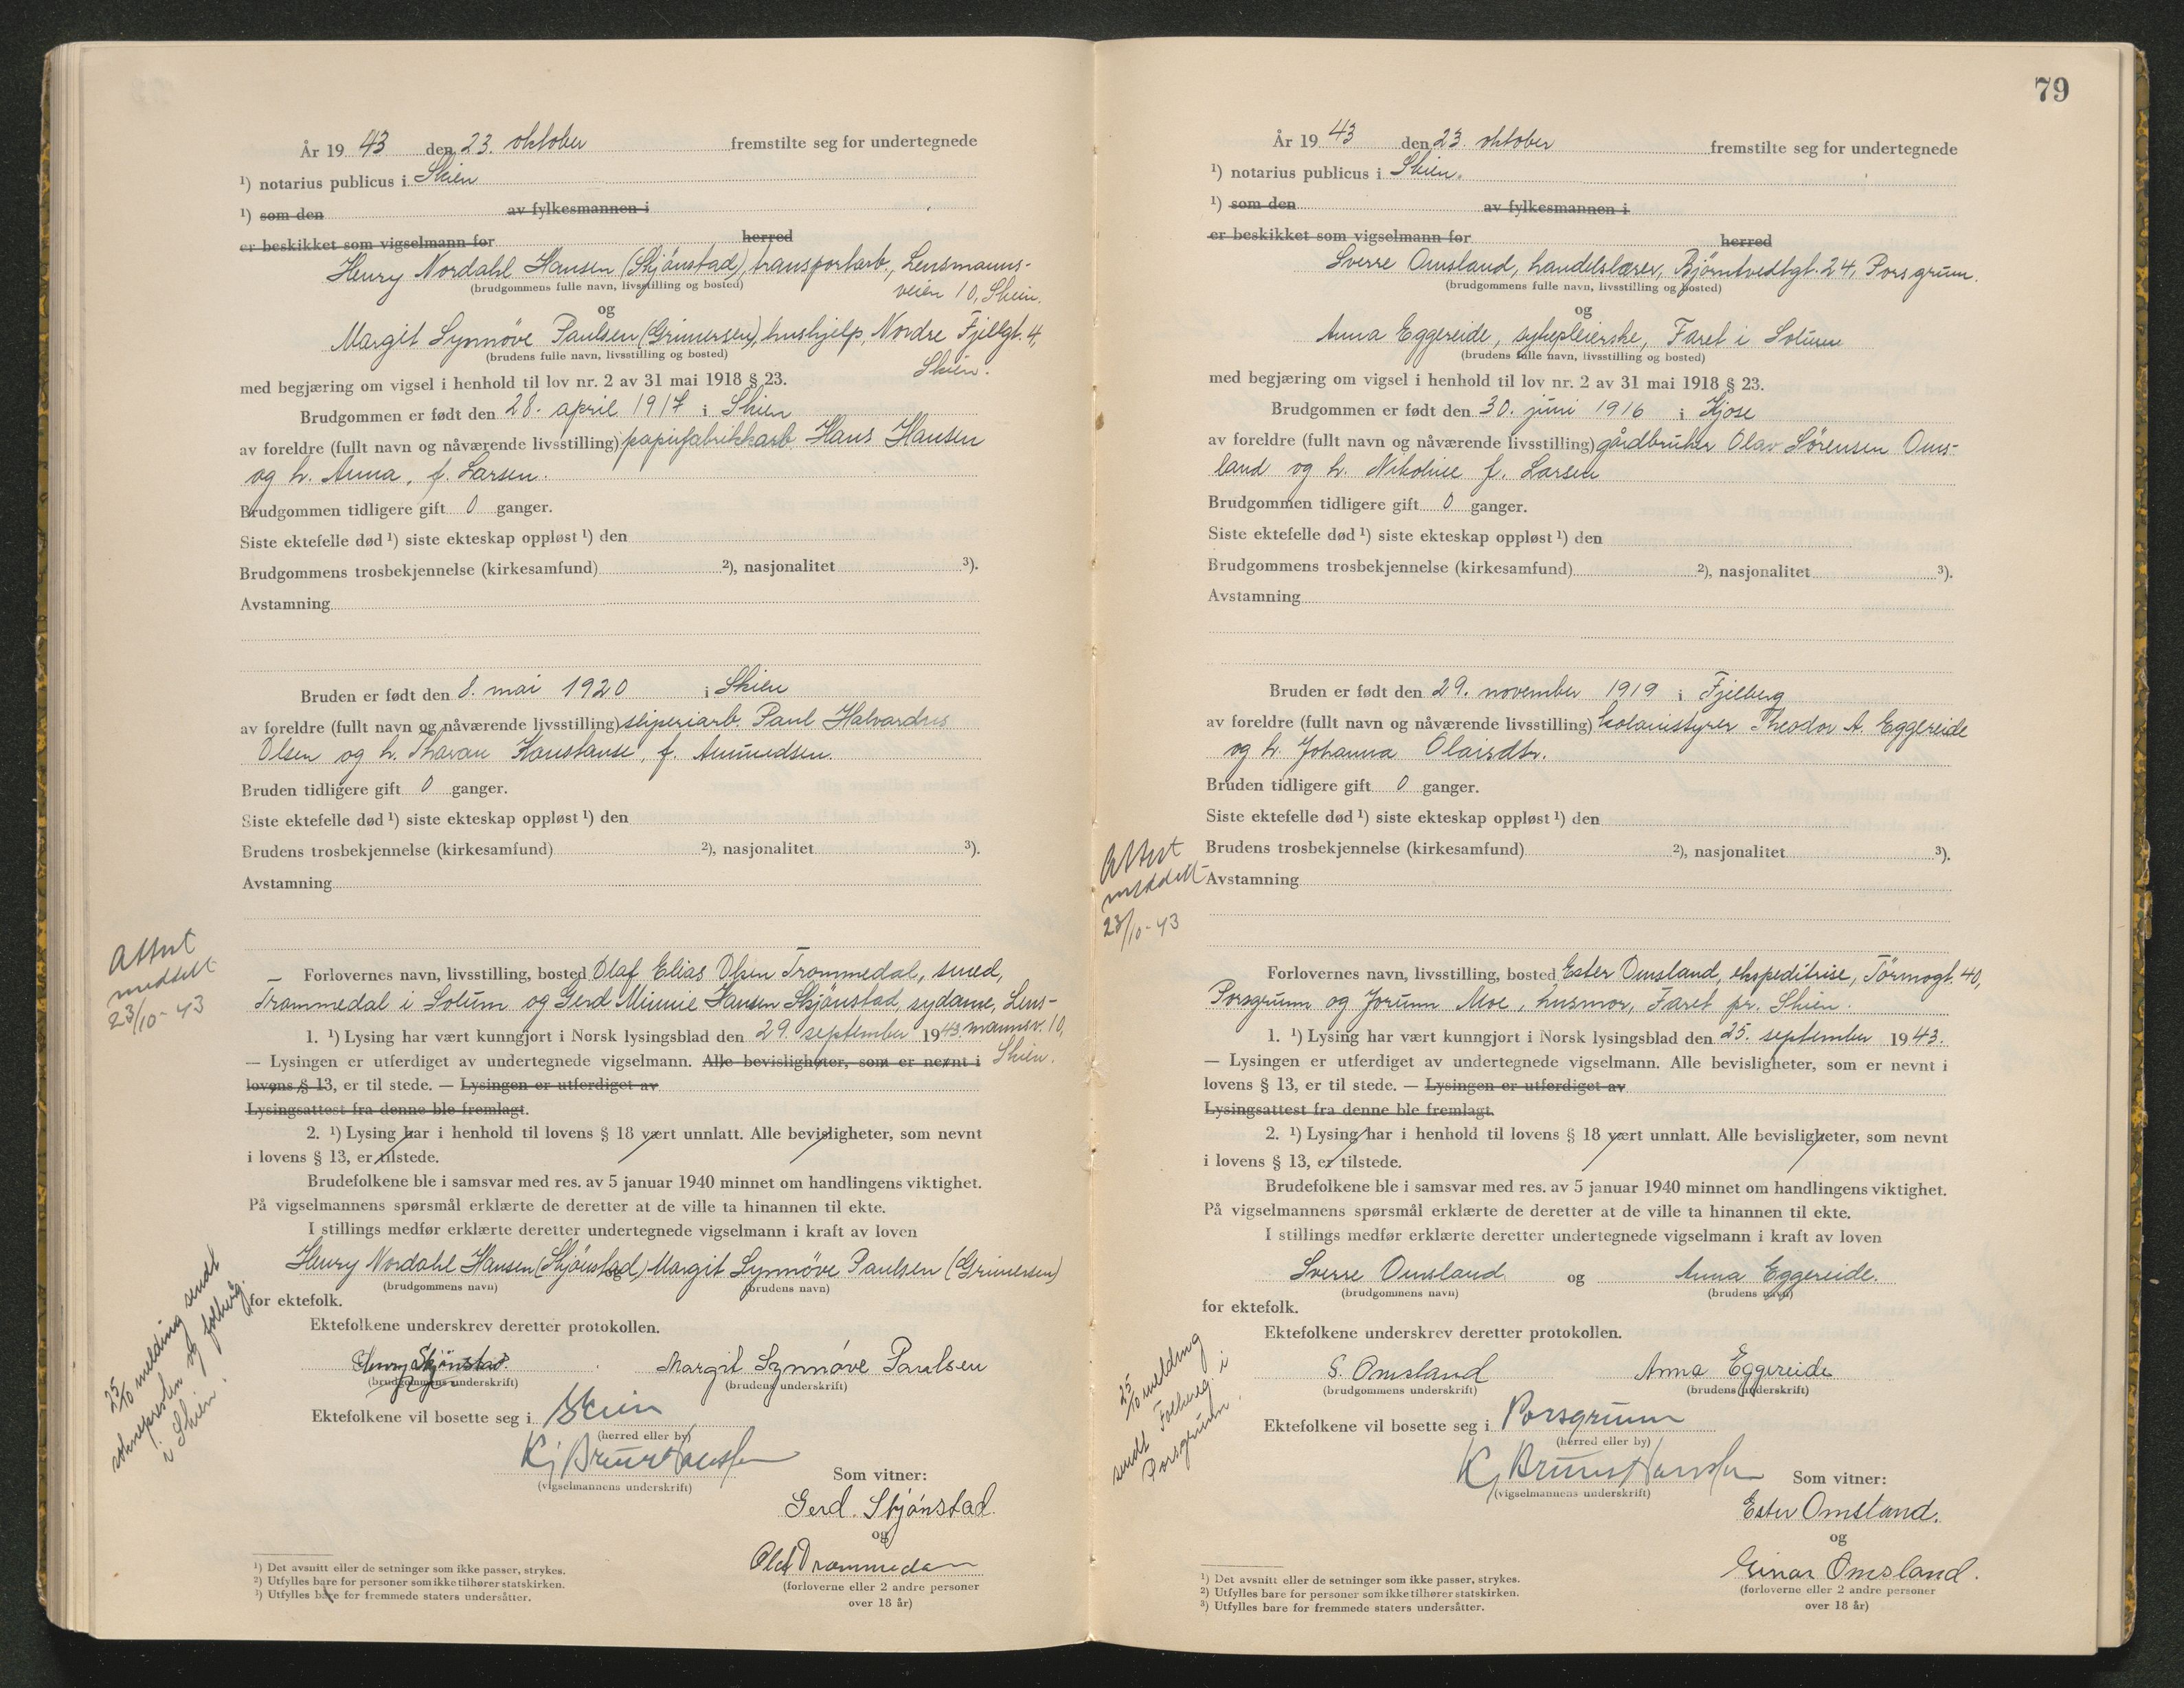 År 19 43 den 23. oktober fremstilte seg for undertegnede
¹) notarius publicus i Skien
¹) som den av fylkesmannen i
er beskikket som vigselmann for herred
Henry Nordahl Hansen (Skjönstad), transportarb., Lensmanns-
(brudgommens fulle navn, livsstilling og bosted)
veien 10, Skien.
og
Margit Synnöve Paulsen (Grimersen), hushjelp, Nordre Fjellgt. 4,
(brudens fulle navn, livsstilling og bosted)
Skien.
med begjæring om vigsel i henhold til lov nr. 2 av 31 mai 1918 § 23.
Brudgommen er født den 28. april 1917 i Skien
av foreldre (fullt navn og nåværende livsstilling) papirfabrikkarb. Hans Hansen
og h. Anna, f. Larsen.
Brudgommen tidligere gift 0 ganger.
Siste ektefelle død ¹) siste ekteskap oppløst ¹) den
Brudgommens trosbekjennelse (kirkesamfund) ²), nasjonalitet ³).
Avstamning
Bruden er født den 8. mai 1920 i Skien
av foreldre (fullt navn og nåværende livsstilling) sliperiarb. Paul Halvardus
Olsen og h. Tharan Konstanse, f. Amundsen.
Bruden tidligere gift 0 ganger.
Siste ektefelle død ¹) siste ekteskap oppløst ¹) den
Brudens trosbekjennelse (kirkesamfund) ²), nasjonalitet ³).
Avstamning
Attest
meddelt
23/10-43
— Forlovernes navn, livsstilling, bosted Olaf Elias Olsen Trommedal, smed,
Trommedal i Solum og Gerd Minnie Hansen Skjönstad, sydame, Lens-
1. ¹) Lysing har vært kunngjort i Norsk lysingsblad den 29. september 1943. mannsv. 10,
— Lysingen er utferdiget av undertegnede vigselmann. Alle bevisligheter, som er nevnt i Skien.
lovens § 13, er til stede. — Lysingen er utferdiget av
Lysingsattest fra denne ble fremlagt.
2. ¹) Lysing har i henhold til lovens § 18 vært unnlatt. Alle bevisligheter, som nevnt
i lovens § 13, er tilstede.
Brudefolkene ble i samsvar med res. av 5 januar 1940 minnet om handlingens viktighet.
På vigselmannens spørsmål erklærte de deretter at de ville ta hinannen til ekte.
I stillings medfør erklærte deretter undertegnede vigselmann i kraft av loven
Henry Nordahl Hansen (Skjönstad) og Margit Synnöve Paulsen (Grimersen)
(brudgommens navn) (brudens navn)
for ektefolk.
Ektefolkene underskrev deretter protokollen.
Henry Skjönstad. Margit Synnöve Paulsen
(brudgommens underskrift) (brudens underskrift)
25/10 melding sendt
soknepresten og folkereg.
i Skien.
Ektefolkene vil bosette seg i Skien
(herred eller by)
Kj Bruun Hanssen
(vigselmannens underskrift)
Som vitner:
Gerd. Skjönstad.
og
Olaf Trommedal
(forloverne eller 2 andre personer
over 18 år)
¹) Det avsnitt eller de setninger som ikke passer, strykes.
²) Utfylles bare for personer som ikke tilhører statskirken.
³) Utfylles bare for fremmede staters undersåtter.
79
År 19 43 den 23. oktober fremstilte seg for undertegnede
¹) notarius publicus i Skien.
¹) som den av fylkesmannen i
er beskikket som vigselmann for herred
Sverre Omsland, handelslærer, Björntvedtgt. 24, Porsgrunn.
(brudgommens fulle navn, livsstilling og bosted)
og
Anna Eggereide, sykepleierske, Faret i Solum
(brudens fulle navn, livsstilling og bosted)
med begjæring om vigsel i henhold til lov nr. 2 av 31 mai 1918 § 23.
Brudgommen er født den 30. juni 1916 i Kjose
av foreldre (fullt navn og nåværende livsstilling) gårdbruker Olav Sörensen Oms-
land og h. Nikoline f. Larsen
Brudgommen tidligere gift 0 ganger.
Siste ektefelle død ¹) siste ekteskap oppløst ¹) den
Brudgommens trosbekjennelse (kirkesamfund) ²), nasjonalitet ³).
Avstamning
Bruden er født den 29. november 1919 i Fjelberg
av foreldre (fullt navn og nåværende livsstilling) kolonistyrer Theodor A. Eggereide
og h. Johanna Olaisdtr.
Bruden tidligere gift 0 ganger.
Siste ektefelle død ¹) siste ekteskap oppløst ¹) den
Brudens trosbekjennelse (kirkesamfund) ²), nasjonalitet ³).
Avstamning
Attest
meddelt
23/10-43
Forlovernes navn, livsstilling, bosted Ester Omsland, ekspeditrise, Törmogt. 40,
Porsgrunn og Jorunn Moe, husmor, Faret pr. Skien.
1. ¹) Lysing har vært kunngjort i Norsk lysingsblad den 25. september 1943.
— Lysingen er utferdiget av undertegnede vigselmann. Alle bevisligheter, som er nevnt i
lovens § 13, er til stede. — Lysingen er utferdiget av
Lysingsattest fra denne ble fremlagt.
2. ¹) Lysing har i henhold til lovens § 18 vært unnlatt. Alle bevisligheter, som nevnt
i lovens § 13, er tilstede.
Brudefolkene ble i samsvar med res. av 5 januar 1940 minnet om handlingens viktighet.
På vigselmannens spørsmål erklærte de deretter at de ville ta hinannen til ekte.
I stillings medfør erklærte deretter undertegnede vigselmann i kraft av loven
Sverre Omsland og Anna Eggereide.
(brudgommens navn) (brudens navn)
for ektefolk.
Ektefolkene underskrev deretter protokollen.
S. Omsland Anna Eggereide
(brudgommens underskrift) (brudens underskrift)
25/10 melding
sendt Folkereg. i
Porsgrunn.
Ektefolkene vil bosette seg i Porsgrunn
(herred eller by)
Kj Bruun Hanssen
(vigselmannens underskrift)
Som vitner:
Ester Omsland.
og
Einar Omsland.
(forloverne eller 2 andre personer
over 18 år)
¹) Det avsnitt eller de setninger som ikke passer, strykes.
²) Utfylles bare for personer som ikke tilhører statskirken.
³) Utfylles bare for fremmede staters undersåtter.